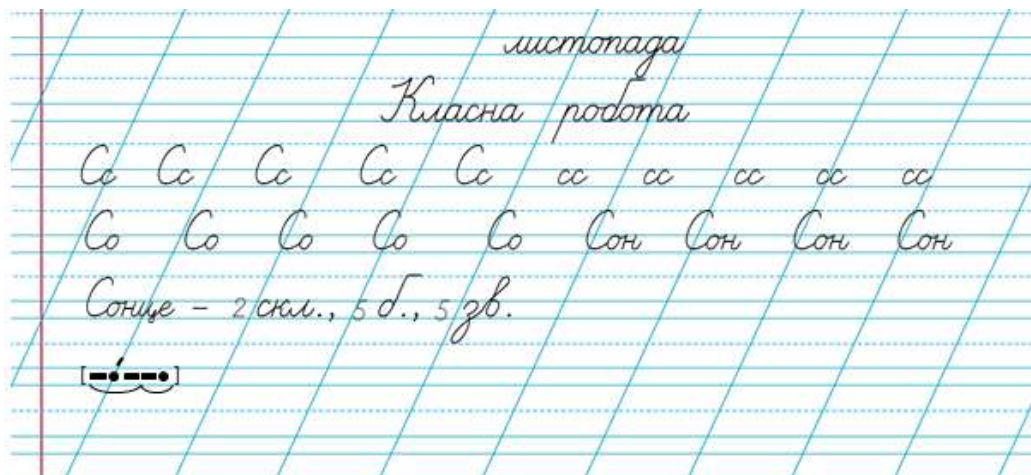 листопада
Класна робота
Сс Сс Сс Сс Сс сс сс сс сс сс
Со Со Со Со Со Сон Сон Сон Сон
Сонце – 2 скл., 5 б., 5 зв.
[–•́ – –•]